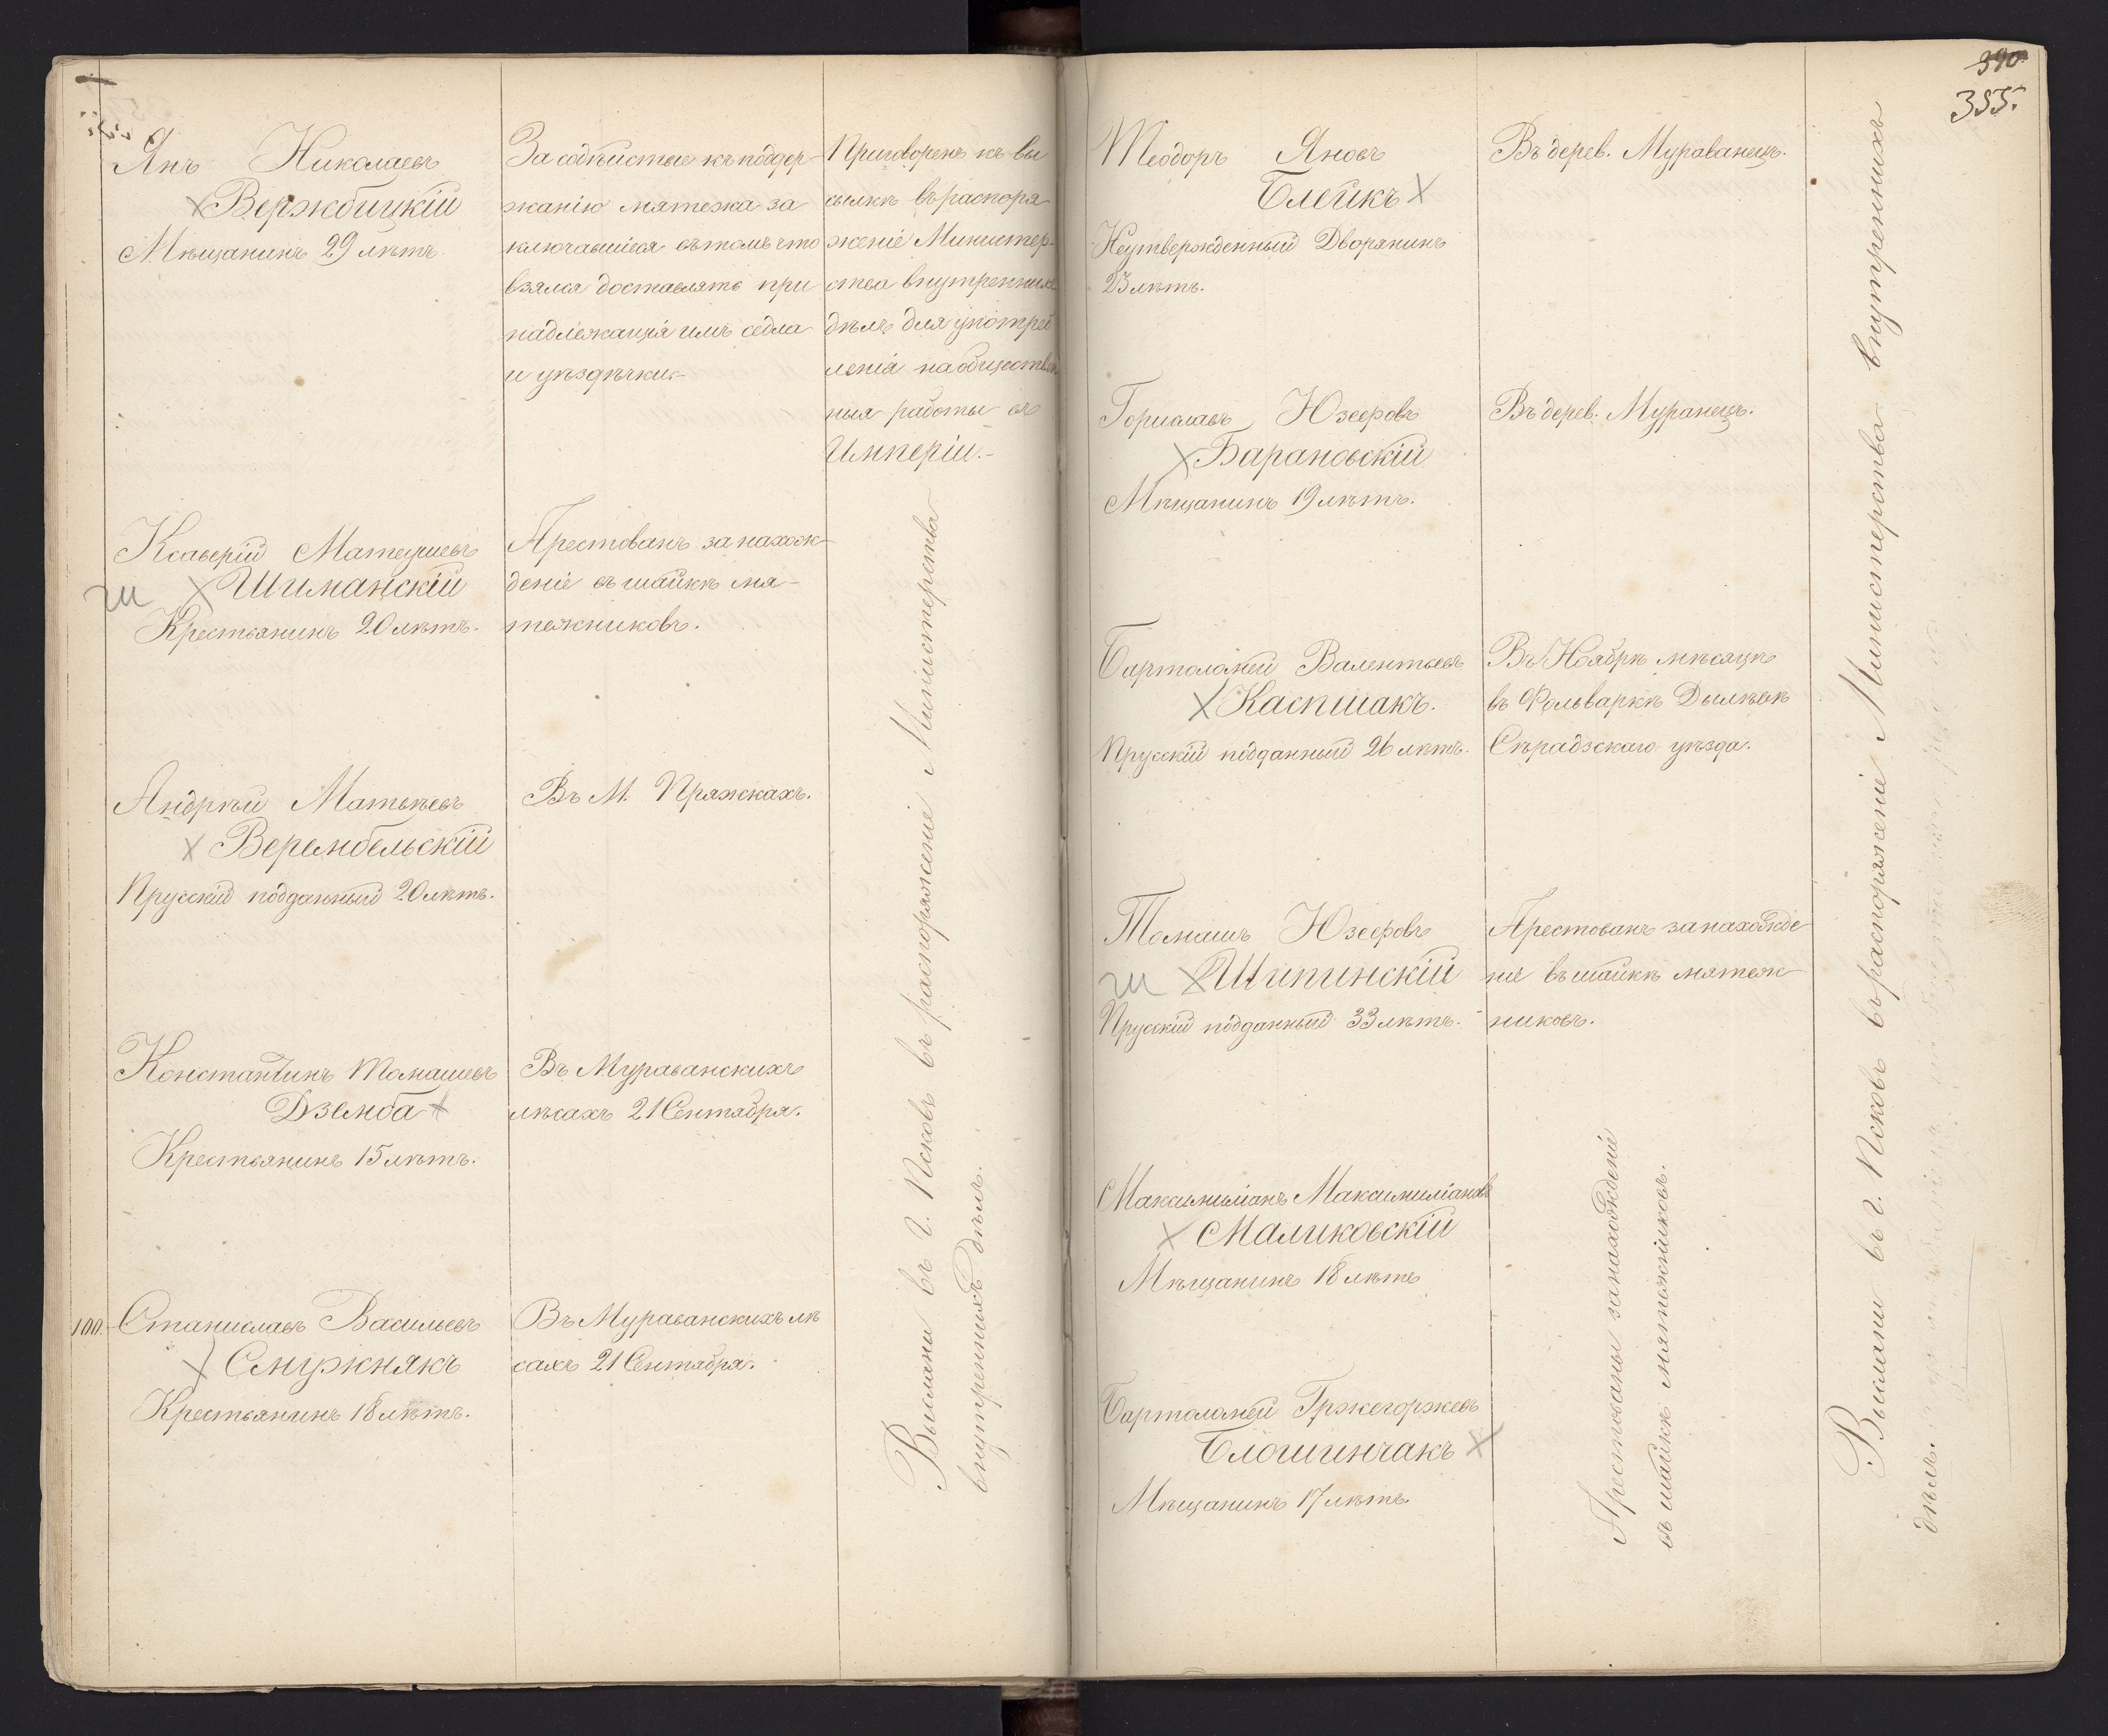 Янъ Николаевъ
Вержбицкій
Мѣщанинъ 29 лѣтъ
За содѣйствіе къ поддер-
жанію мятежа за
ключавшіеся въ томъ что
взялся доставлять при
надлежащія имъ седла
и уѣздѣчки.-
Приговоренъ къ вы
сылкѣ въ распоря
женіе Министер-
ства внутреннихъ
дѣлъ для употреб
ленія на обществен
ныя работы въ
Имперіи.-
Ксаверій Матеушевъ
Шиманскій
Крестьянинъ 20 лѣтъ.
Арестованъ за нахож-
деніе въ шайкѣ мя-
тежниковъ.
Андрѣй Матвѣевъ
Верембельскій
Прусскій подданный 20 лѣтъ.
Въ М. Пряжкахъ.
Константинъ Томашевъ
Дземба
Крестьянинъ 15 лѣтъ.
Въ Мураванскихъ
лѣсахъ 21 Сентября.
100. Станиславъ Васильевъ
Смужнякъ
Крестьянинъ 18 лѣтъ.
Въ Мураванскихъ лѣ
сахъ 21 Сентября.
Высланы въ г. Псковъ въ распоряженіе Министерства
внутреннихъ дѣлъ.
390.
355.
Теодоръ Яновъ
Блейкъ
Неутвержденный Дворянинъ
23 лѣтъ.
Въ дерев. Мураванецъ.
Гориславъ Юзефовъ
Барановскій
Мѣщанинъ 19 лѣтъ.
Въ дерев. Муранецъ.
Бартоломей Валентьевъ
Каспшакъ.
Прусскій подданный 26 лѣтъ.
Въ Ноябрѣ мѣсяцѣ
въ Фольваркѣ
Сѣрадзскаго уѣзда.
Томашъ Юзефовъ
Шипинскій
Прусскій подданный 33 лѣтъ.
Арестованъ за нахожде
ніе въ шайкѣ мятеж
никовъ.
Максимиліанъ Максимиліановъ
Маликовскій
Мѣщанинъ 18 лѣтъ
Бартоломей Гржегоржевъ
Блошинчакъ
Мѣщанинъ 17 лѣтъ.
Арестованы за нахожденіе
въ шайкѣ мятежниковъ.
Высланы въ г. Псковъ въ распоряженіе Министерства внутреннихъ
дѣлъ.